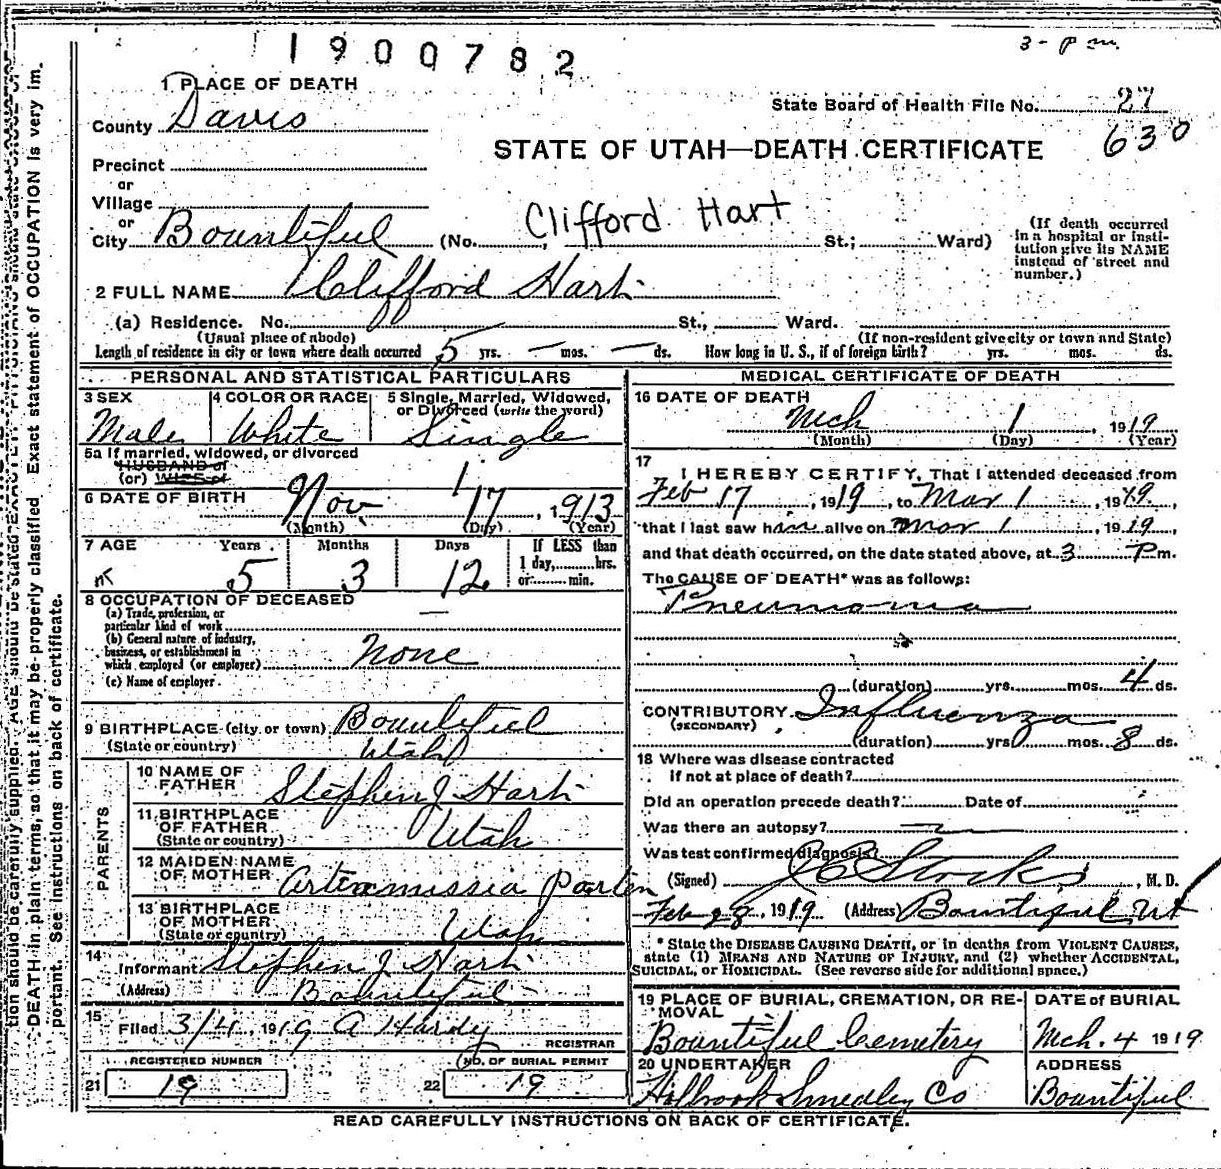 1900782
3 - P m.
1 PLACE OF DEATH
State Board of Health File No. 27
County Davis
630
STATE OF UTAH—DEATH CERTIFICATE
Precinct
or
Village
or
City Bountiful (No. , St.; Ward)
Clifford Hart
(If death occurred in a hospital or insti-
tution give its NAME
instead of street and
number.)
2 FULL NAME Clifford Hart
(a) Residence. No. St., Ward.
(Usual place of abode) (If non-resident give city or town and State)
Length of residence in city or town where death occurred 5 yrs. — mos. — ds. How long in U. S., if of foreign birth? yrs. mos. ds.
PERSONAL AND STATISTICAL PARTICULARS
3 SEX Male
4 COLOR OR RACE White
5 Single, Married, Widowed,
or Divorced (write the word)
Single
5a If married, widowed, or divorced
HUSBAND of
(or) WIFE of
6 DATE OF BIRTH Nov 17, 1913
(Month) (Day) (Year)
7 AGE Years Months Days If LESS than
1 day, hrs.
or min.
5 3 12
8 OCCUPATION OF DECEASED
(a) Trade, profession, or
particular kind of work —
(b) General nature of industry,
business, or establishment in
which employed (or employer) None
(c) Name of employer
9 BIRTHPLACE (city or town) Bountiful
(State or country) Utah
PARENTS
10 NAME OF
FATHER Stephen J Hart
11 BIRTHPLACE
OF FATHER
(State or country) Utah
12 MAIDEN NAME
OF MOTHER Artemissia Parten
13 BIRTHPLACE
OF MOTHER
(State or country) Utah
14
Informant Stephen J Hart
(Address) Bountiful
15
Filed 3/4, 1919 A Hardy
REGISTRAR
REGISTERED NUMBER NO. OF BURIAL PERMIT
21 19 22 19
MEDICAL CERTIFICATE OF DEATH
16 DATE OF DEATH
Mch 1, 1919
(Month) (Day) (Year)
17
I HEREBY CERTIFY, That I attended deceased from
Feb 17, 1919, to Mar 1, 1919,
that I last saw him alive on Mar 1, 1919
and that death occurred, on the date stated above, at 3 P m.
The CAUSE OF DEATH* was as follows:
Pneumonia
(duration) yrs. mos. 4 ds.
CONTRIBUTORY Influenza
(SECONDARY)
(duration) yrs. mos. 8 ds.
18 Where was disease contracted
if not at place of death?
Did an operation precede death? Date of
Was there an autopsy? —
Was test confirmed diagnosis?
(Signed) J C Stocks, M. D.
Feb 28, 1919 (Address) Bountiful Ut
* State the DISEASE CAUSING DEATH, or in deaths from VIOLENT CAUSES,
state (1) MEANS AND NATURE OF INJURY, and (2) whether ACCIDENTAL,
SUICIDAL, or HOMICIDAL. (See reverse side for additional space.)
19 PLACE OF BURIAL, CREMATION, OR RE-
MOVAL
Bountiful Cemetery
DATE of BURIAL
Mch. 4 1919
20 UNDERTAKER
Holbrook Smedley Co
ADDRESS
Bountiful
READ CAREFULLY INSTRUCTIONS ON BACK OF CERTIFICATE.
tion should be carefully supplied. AGE should be stated EXACTLY. PHYSICIANS should state CAUSE OF
DEATH in plain terms, so that it may be properly classified. Exact statement of OCCUPATION is very im-
portant. See instructions on back of certificate.